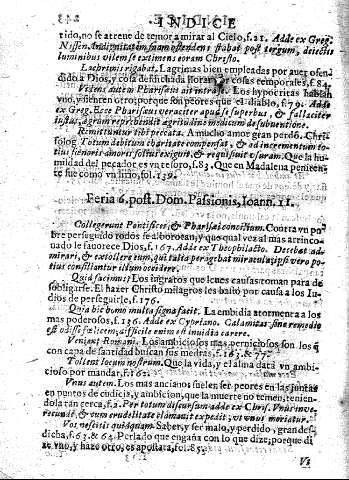 INDICE
tido, no se atreue de temor a mirar al Cielo, f. 21. Adde ex Greg.
Nissen. Indignitatem suam ostendens stabat post tergum, deiectis
luminibus vilem se existimens coram Christo.
Lachrimis rigabat. Lagrimas bien empleadas por auer ofen-
dido a Dios, y cosa desdichada llorar por cosas temporales, f. 84.
Videns autem Phariseus ait intra se. Los hypocritas hablan
vno, y sienten otro; porque son peores que el diablo, f. 79. Adde
ex Greg. Ecce Phariseus veraciter apud se superbus, & fallaciter
iustus, ægrum reprehendit ægritudine medicum de subuentione.
Remittuntur tibi peccata. A mucho amor gran perdõ. Chri-
solog. Totum debitum charitate compensat, & ad incrementum to-
tius fœnoris amoris solius exigunt, & requisiuit usuram. Que la hu-
mildad del pecador es varõ forço, f. 83. Que en Madalena peniten-
te fue como vn lirio, fol. 139.
Feria 6. post. Dom. Passionis, Ioann. 11.
Collegerunt Pontifices, & Pharisæi concilium. Contra vn po-
bre perseguido todos se alborotan, y que qual vez al mas arrinco-
nado le fauorece Dios, f. 167. Adde ex Theophilacto. Decebat ad-
mirari, & extollere eum, qui talia peragebat miracula; ipsi vero po-
tius consiliantur illum occidere.
Quid facimus? Los ingratos que leues causas toman para de-
sobligarse. El hazer Christo milagros les bastò por causa a los Iu-
dios de perseguirle, f. 176.
Quia hic homo multa signa facit. La embidia atormenta a los
mas poderosos, f. 136. Adde ex Cypriano. Calamitas sine remedio
est odisse fœlicem, difficile enim est inuidia carere.
Venient Romani. Los ambiciosos mas perniciosos son los q̃
con capa de santidad buscan sus medras, f. 163. & 77.
Tollent locum nostrum. Que la vida, y el alma darà vn ambi-
cioso por mandar, f. 162.
Vnus autem. Los mas ancianos suelen ser peores en las juntas
en puntos de cudicia, y ambicion, que la muerte no temen, tenien-
dola tan cerca, f. 2. Per totum discursum adde ex Chris.
Vos nescitis quidquam. Saber, y ser malo, y perdido, gran des-
dicha, f. 63. & 64. Perlado que engaña con lo que dize; porque di
ze vno, y haze otro, es apostata, fol. 85.
Vt